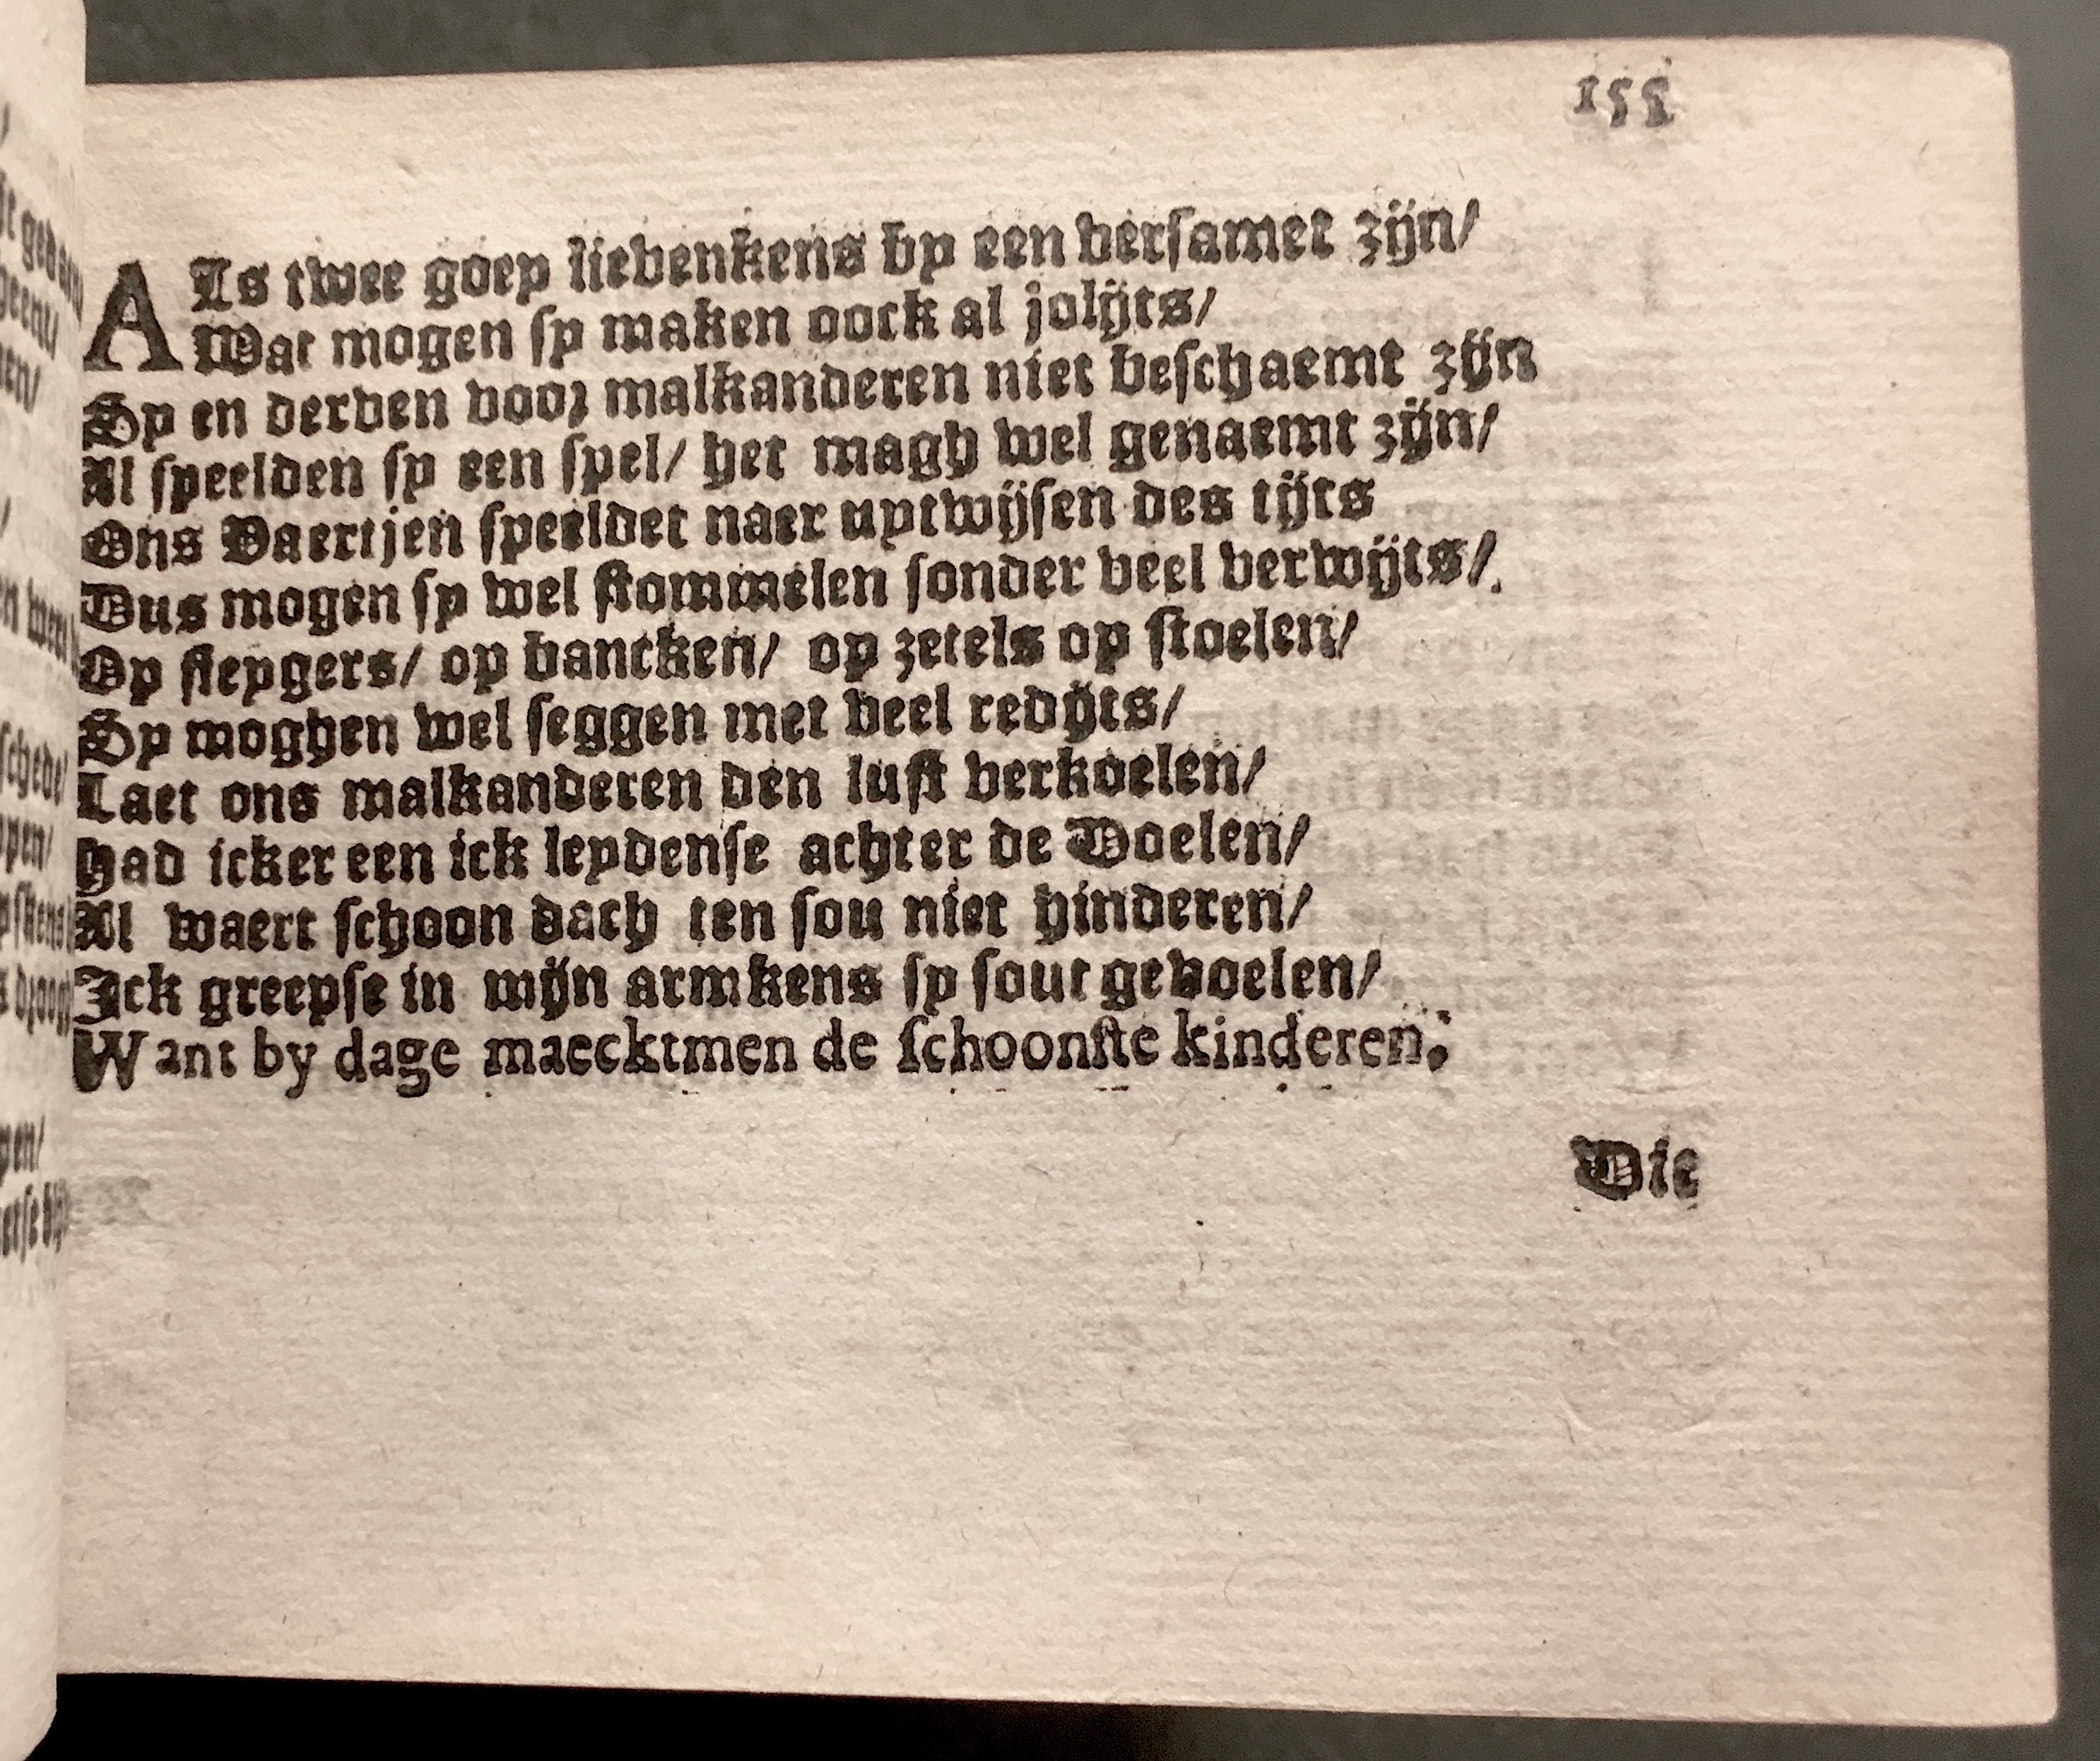 155
ALs twee goey lievenkens by een versamet zijn/
Wat mogen sy maken oock al jolijts/
Sy en derven voor malkanderen niet beschaemt zijn
Al speelden sy een spel/ het magh wel genaemt zijn/
Ons Vaertjen speeldet naer uytwijsen des tijts
Dus mogen sy wel stommelen sonder veel verwijts/.
Op sleygers/ op bancken/ op zetels op stoelen/
Sy moghen wel seggen met veel redijts/
Laet ons malkanderen den lust verkoelen/
Had icker een ick leydense achter de Doelen/
Al waert schoon dach ten sou niet hinderen/
Ick greepse in mijn armkens sy sout gevoelen/
Want by dage maecktmen de schoonste kinderen:
Die